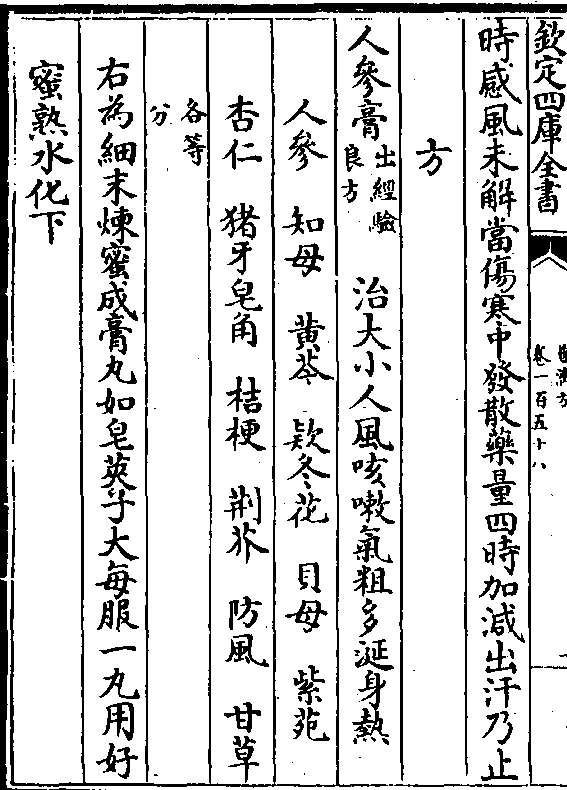 欽定四庫全書
卷一百五十八
時感風未解當傷寒中發散藥量四時加減出汗乃止
方
人參膏出經驗良方 治大小人風咳嗽氣粗多涎身熱
人參 知母 黃芩 款冬花 貝母 紫菀
杏仁 猪牙皂角 桔梗 荆芥 防風 甘草
各等分
右為細末煉蜜成膏丸如皂莢子大每服一丸用好
蜜熟水化下